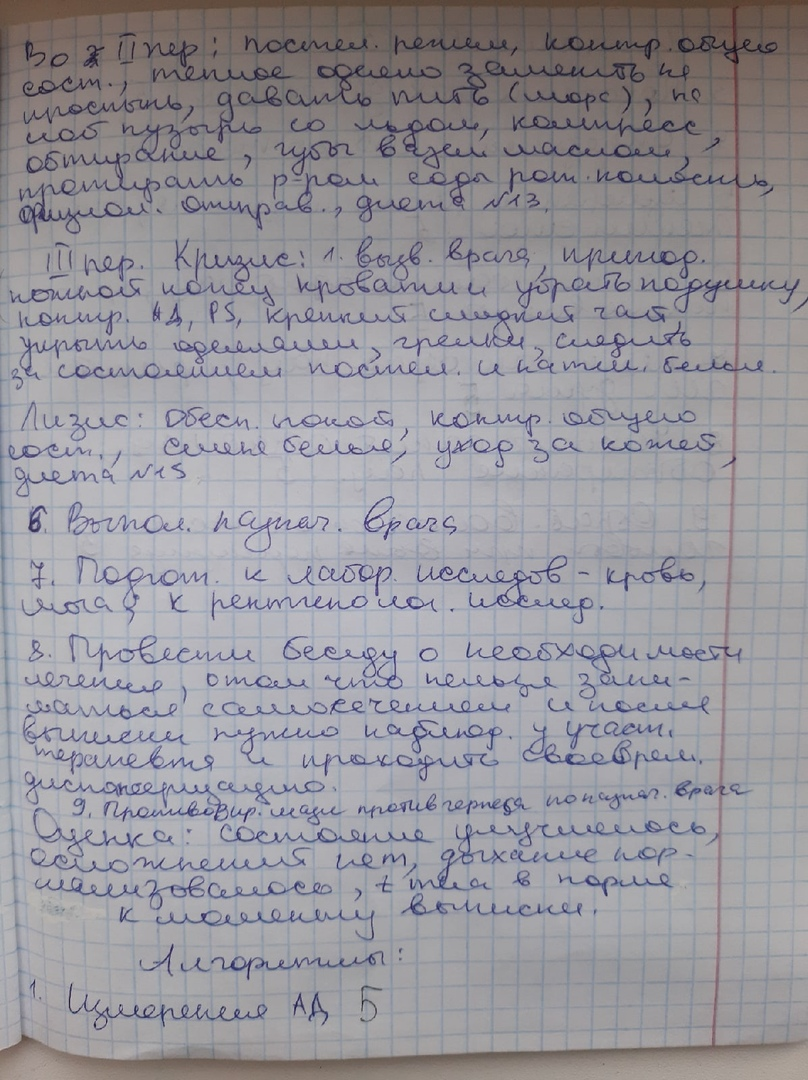 Во II пер: постел. режим, контр. общего
сост., теплое одеяло заменить на
простынь, давать пить (морс), на
лоб пузырь со льдом, компресс,
обтирание, губы вазел. маслом,
протирать р-ром соды рот. полость,
физиол. отправ., диета №13.
III пер. Кризис: 1. вызв. врача, припод.
ножной конец кровати и убрать подушку,
контр. АД, PS, крепкий сладкий чай,
укрыть одеялами, грелки, следить
за состоянием постел. и натил. белья.
Лизис: Обесп. покой, контр. общего
сост., смена белья, уход за кожей,
диета №15
6. Выпол. назнач. врача
7. Подгот. к лабор. исследов - кровь,
моча; к рентгенолог. исслед.
8. Провести беседу о необходимости
лечения, о том что нельзя зани-
маться самолечением и после
выписки нужно наблюд. у участ.
терапевта и проходить своеврем.
диспансеризацию.
9. Противовир. мази против герпеса по назнач. врача
Оценка: состояние улучшилось,
осложнений нет, дыхание нор-
мализовалось, t тела в норме
к моменту выписки.
Алгоритмы:
1. Измерение АД 5